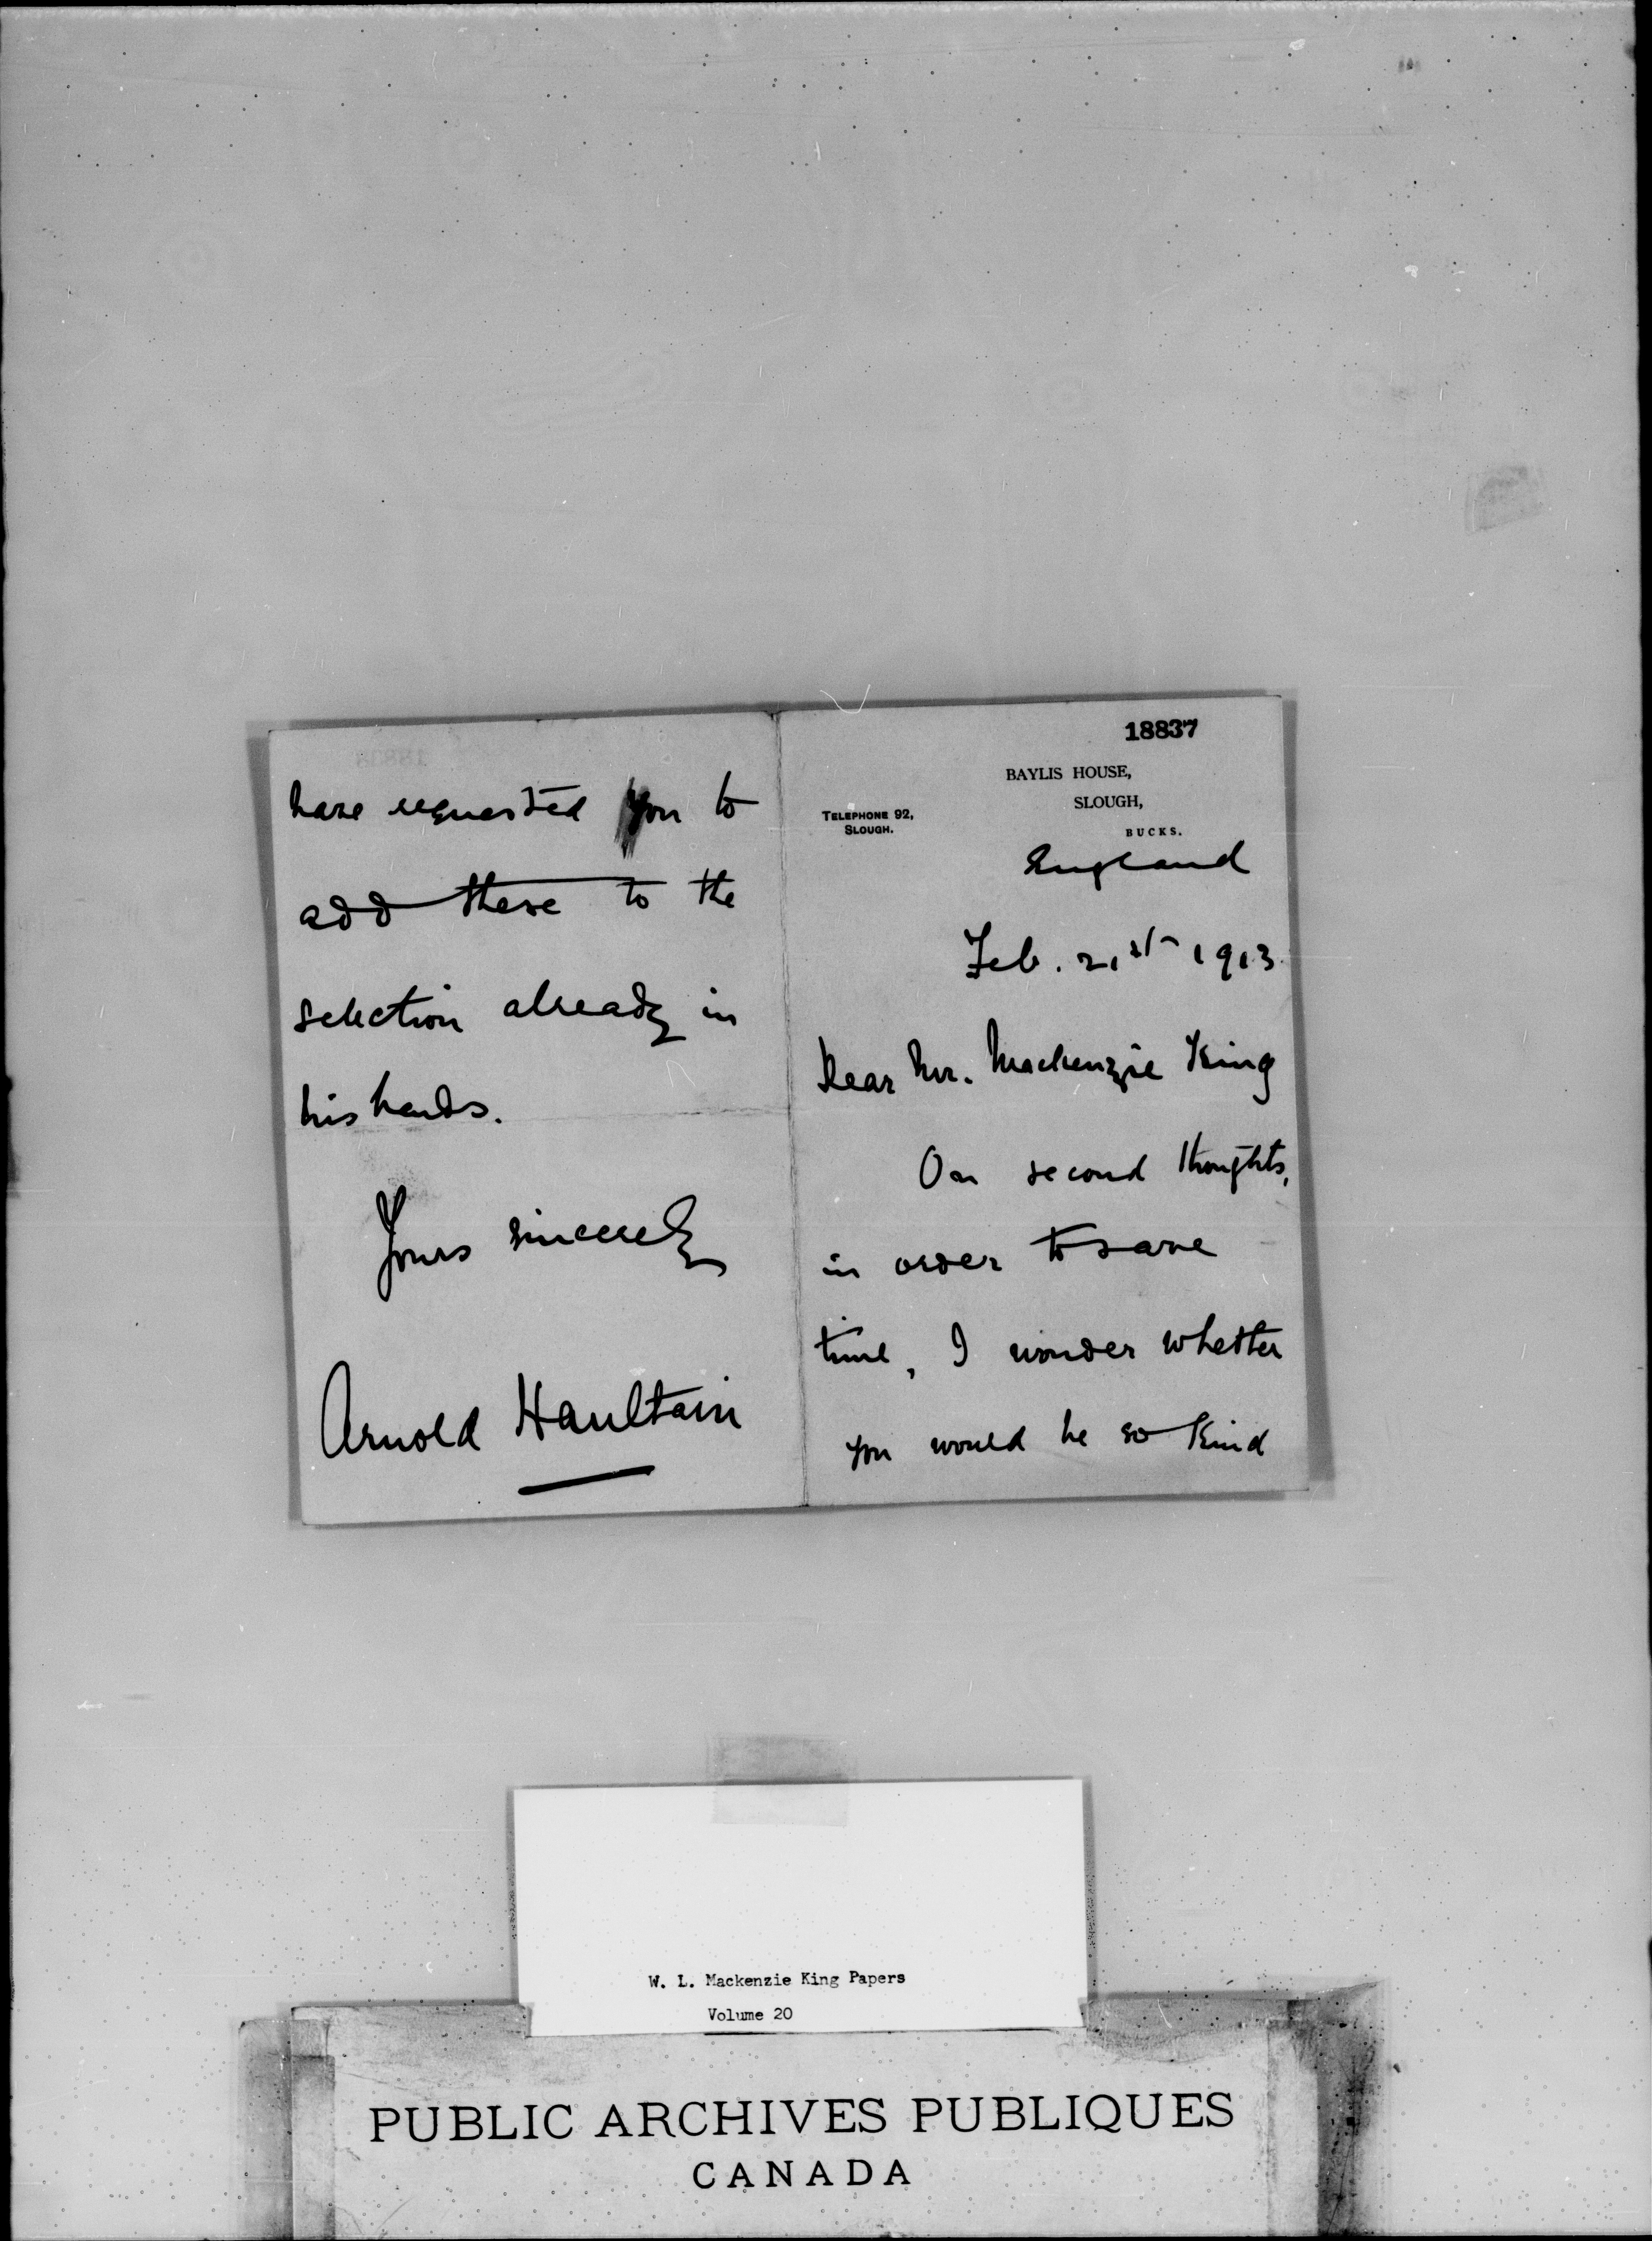 have requested you to
add these to the
selection already in
his hands.
Yours sincerely
Arnold Haultain
18837
BAYLIS HOUSE,
SLOUGH,
BUCKS.
TELEPHONE 92,
SLOUGH.
England
Feb. 21st 1913
Dear Mr. Mackenzie King
On second thoughts,
in order to save
time, I wonder whether
you would be so kind
W. L. Mackenzie King Papers
Volume 20
PUBLIC ARCHIVES PUBLIQUES
CANADA